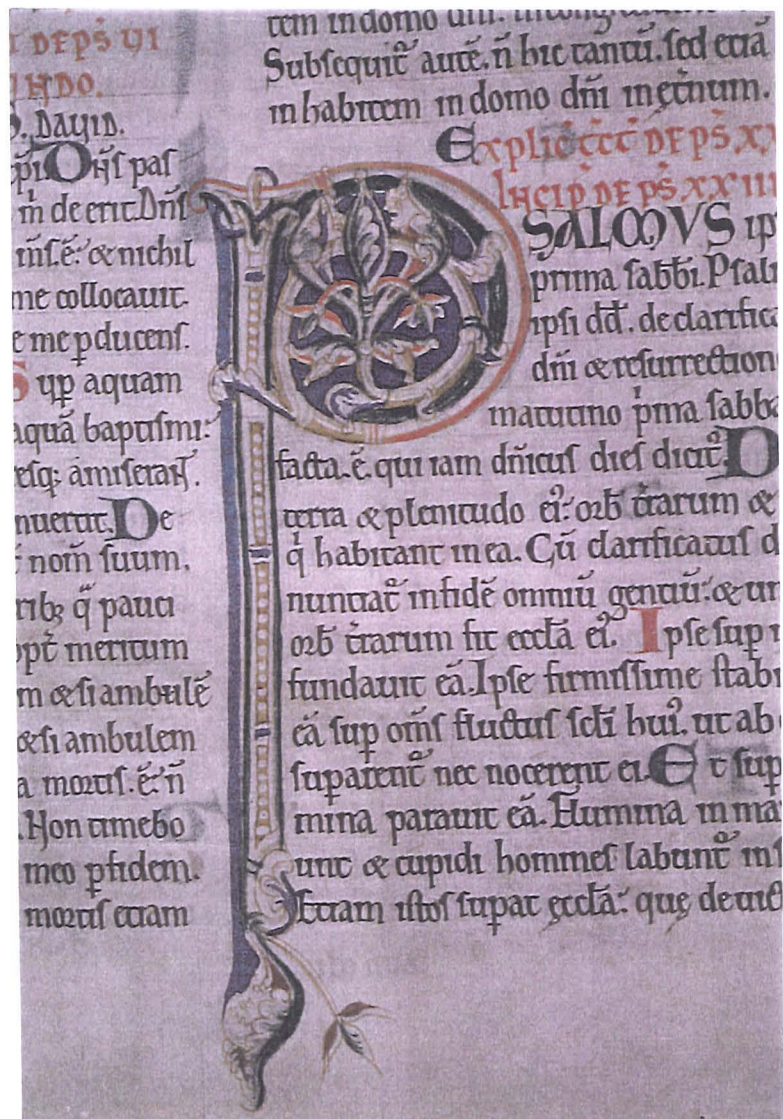 DE PS̄ VI
HDO.
S. DAVID.
OH̄S pas
m̍ de erit. Dn̄s
im̄s. ē. & nichil
me collocauit.
e me ꝑducens.
Sup̱ aquam
aquā baptismi:
esq; amiserat̄.
nuertit. De
nom̄ suum.
rib; q̄ pauci
opt̄ meritum
m & si ambulē
& si ambulem
a mortis. ē. n̄
. Hon timebo
meo ꝑ fidem.
mortis etiam
tem in domo dn̄i. in
Subsequit̄ autē. n̄ hic tantū. sed etiā
inhabitem in domo dn̄i inet̄num.
Explic̄ DE PS̄. XX
IHCIP̄ DE PS̄. XXIII
PSALMVS ip
prima sabb̄i. Psal
ipsi dd̄. de clarific
dn̄i & resurrection
matutino p̍ma sabb
facta. ē. qui iam dn̄icus dies dicit̄. D
terra & plenitudo ei᾽: orb̄ t̄rarum &
q̍ habitant in ea. Cū clarificatus d
nuntiat̄ in fidē omniū gentiū: & un
orb̄ t̄rarum fit eccl̄a ei᾽. Ipse sup̱
fundauit eā. Ipse firmissime stabi
eā sup̱ om̄s fluctus scl̄i hui᾽. ut ab
sup̱arent̄ nec nocerent ei. Et sup̱
mina parauit eā. Flumina in ma
unt & cupidi homines labunt̄ in
Etiam istos sup̱at ęccl̄a: quę deuic